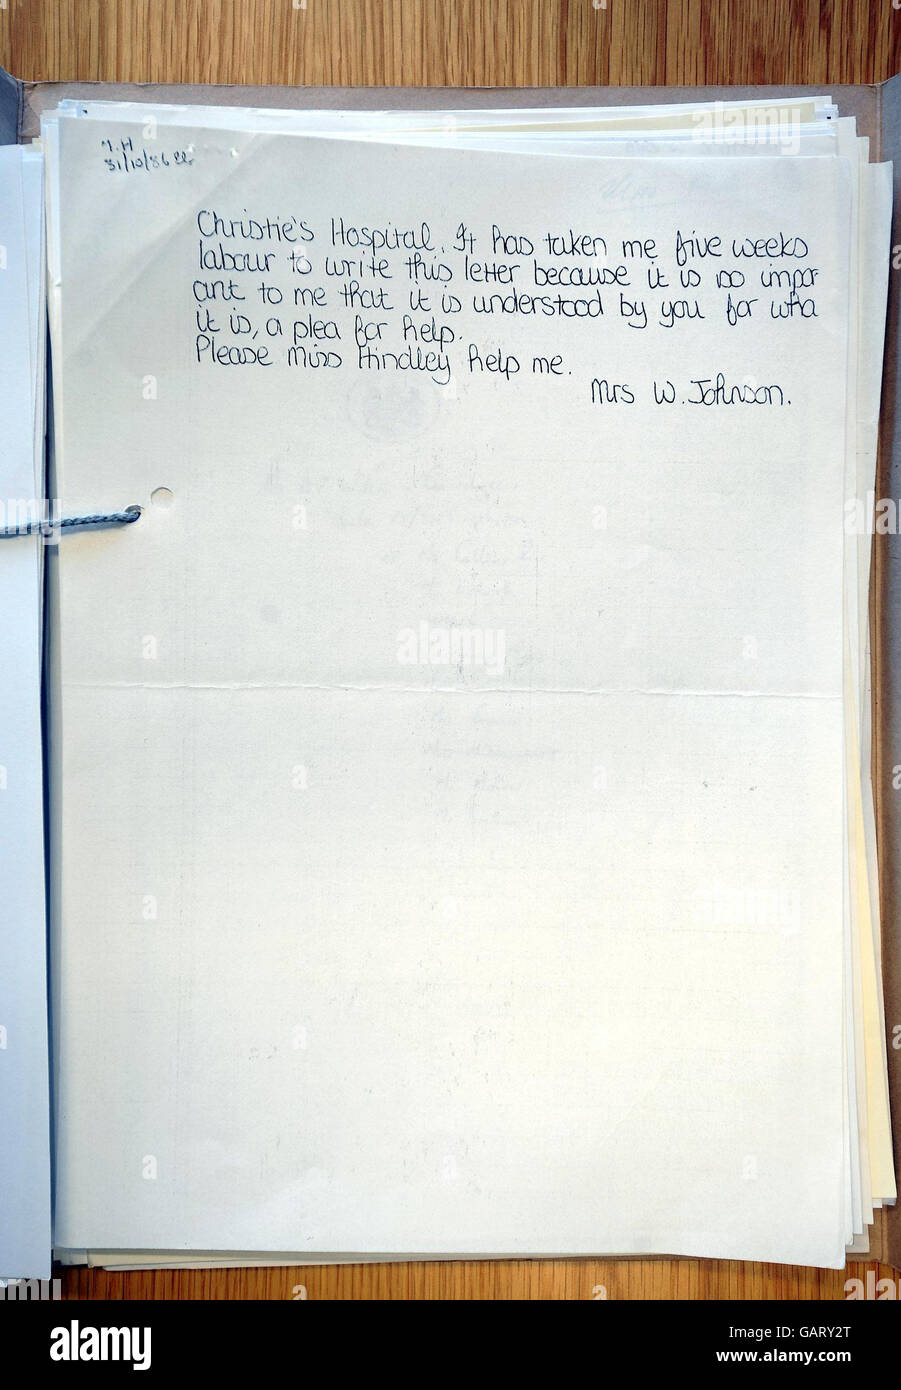 M.H
31/10/86
Christie's Hospital. It has taken me five weeks
labour to write this letter because it is so impor
ant to me that it is understood by you for wha
it is, a plea for help.
Please Miss Hindley help me.
Mrs W. Johnson.
alamy
alamy
Image ID: GARY2T
www.alamy.com